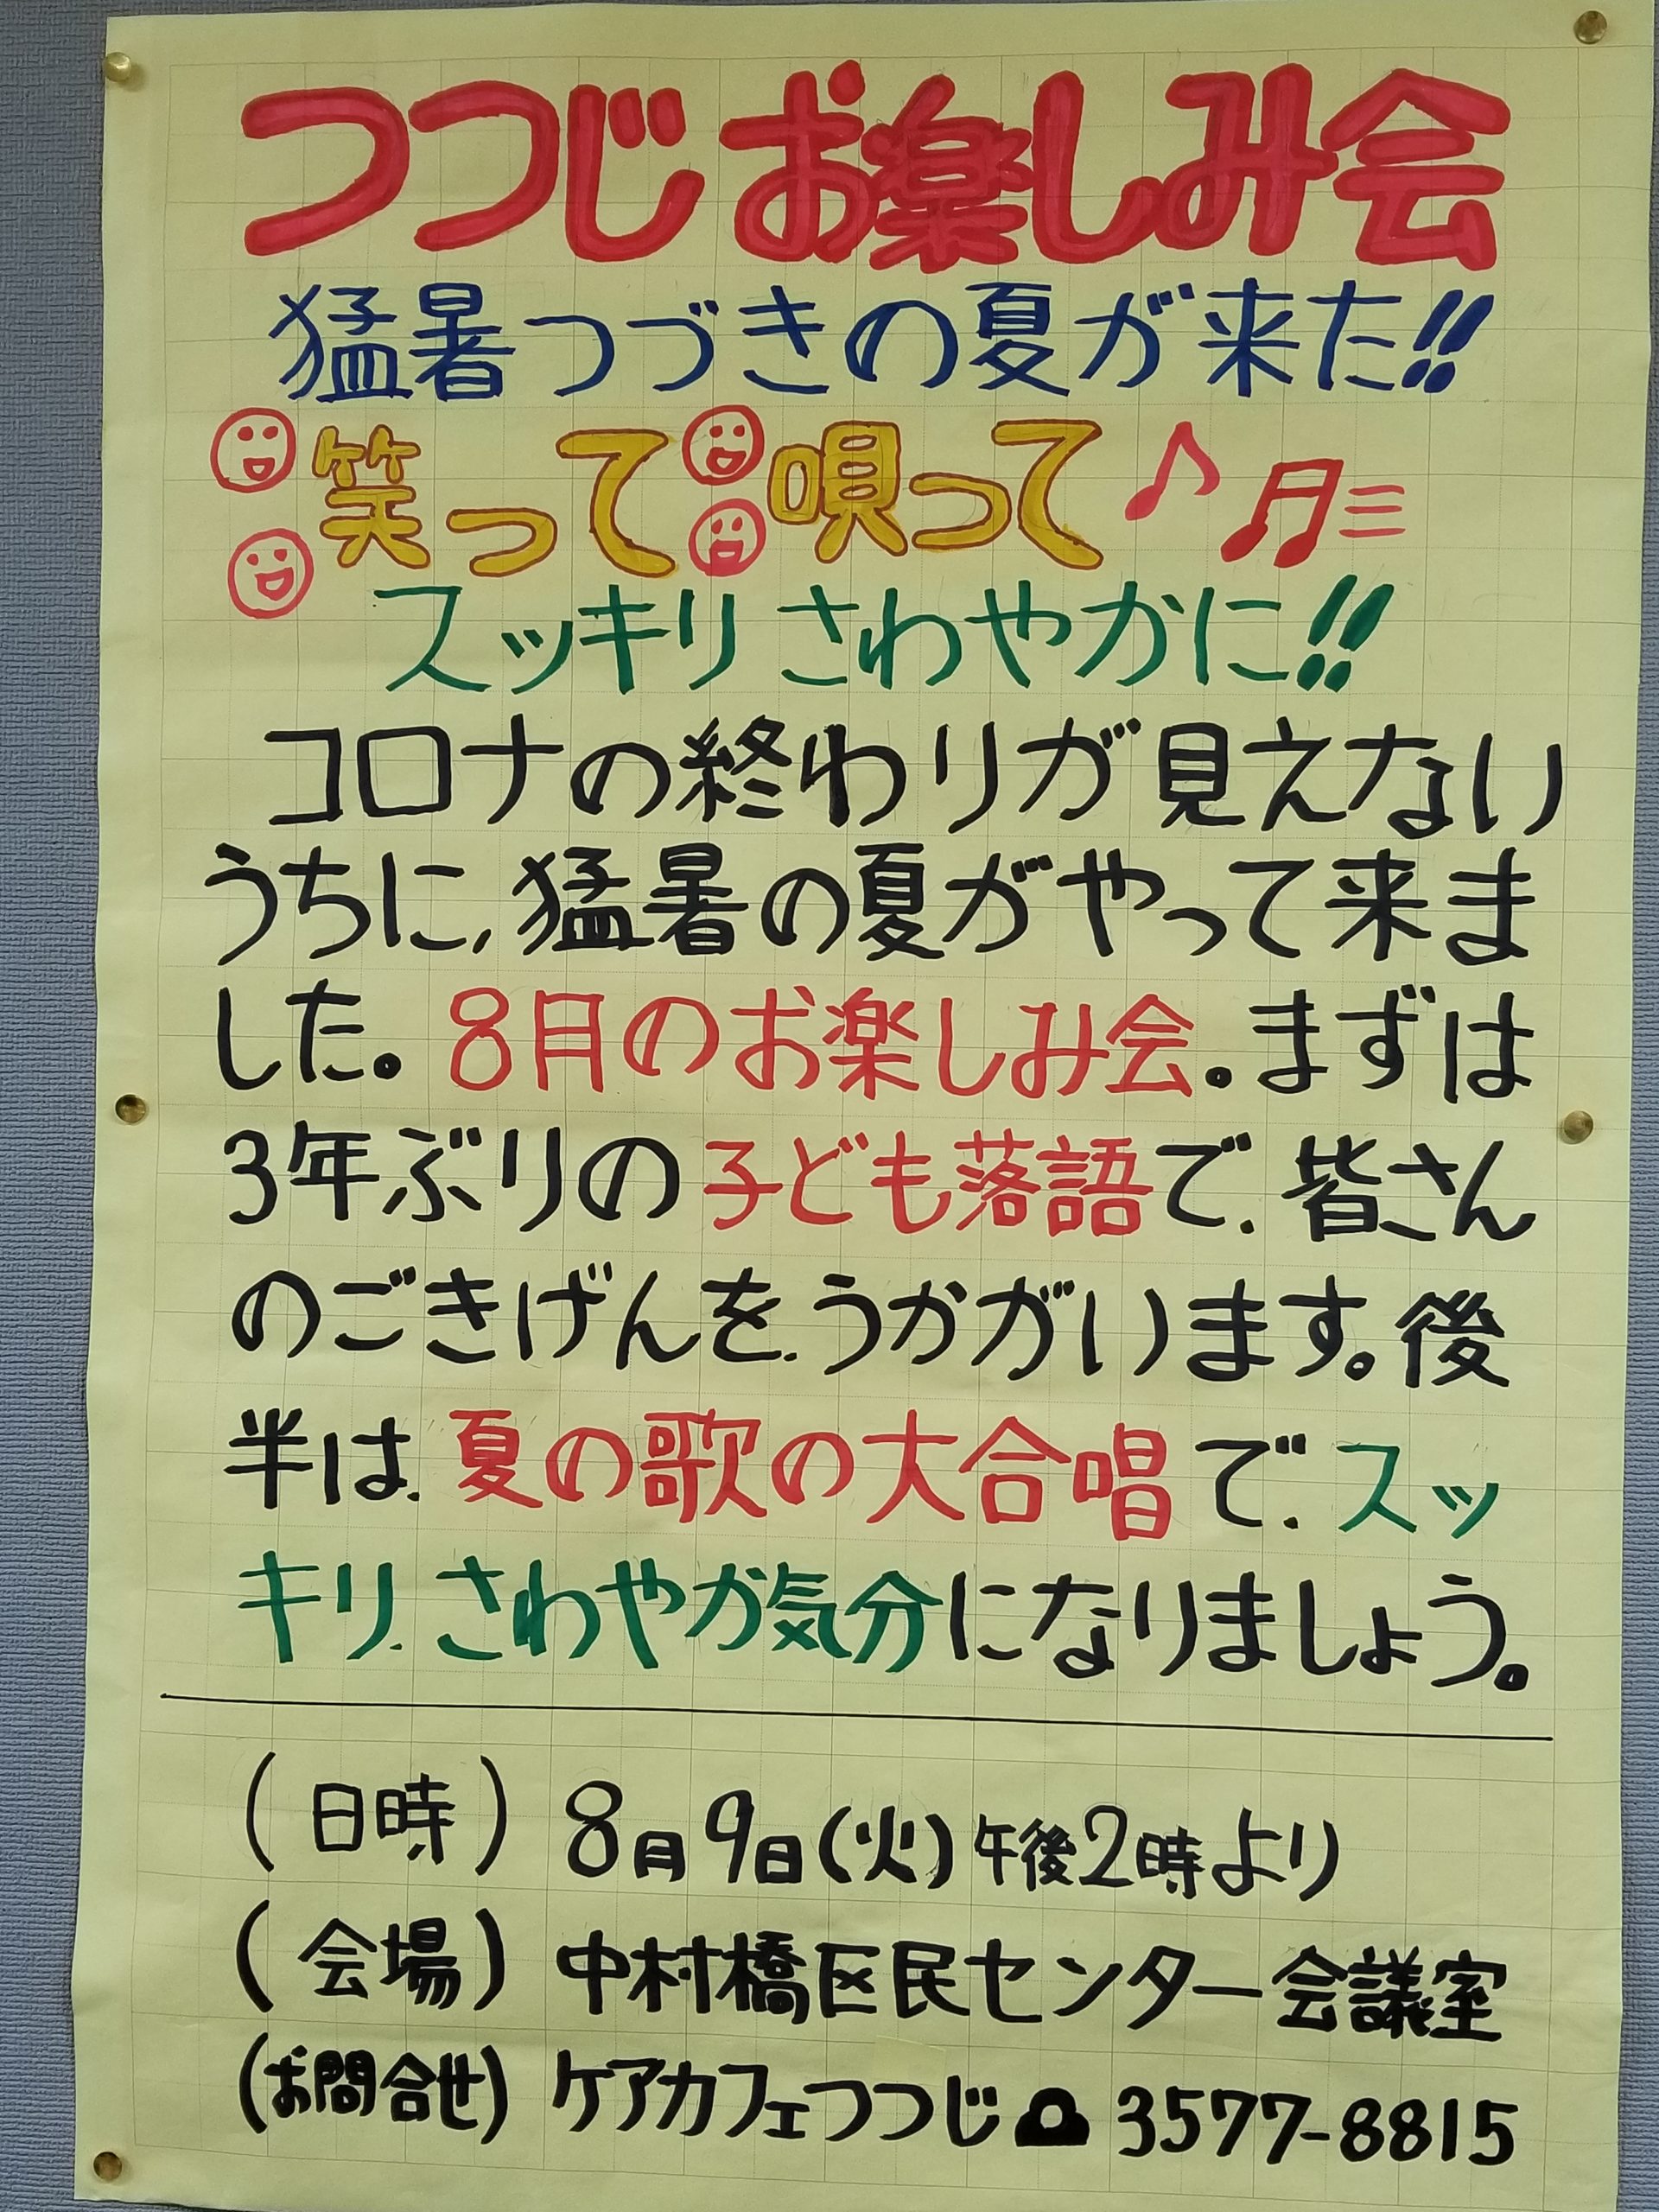 つつじ お楽しみ会
猛暑つづきの夏が来た!!
笑って 唄って♪♬
スッキリ さわやかに!!
コロナの終わりが見えない
うちに、猛暑の夏がやって来ま
した。8月のお楽しみ会。まずは
3年ぶりの子ども落語で、皆さん
のごきげんを、うかがいます。後
半は、夏の歌の大合唱で、スッ
キリ、さわやか気分になりましょう。
(日時) 8月9日(火)午後2時より
(会場) 中村橋区民センター会議室
(お問合せ) ケアカフェつつじ☎3577-8815